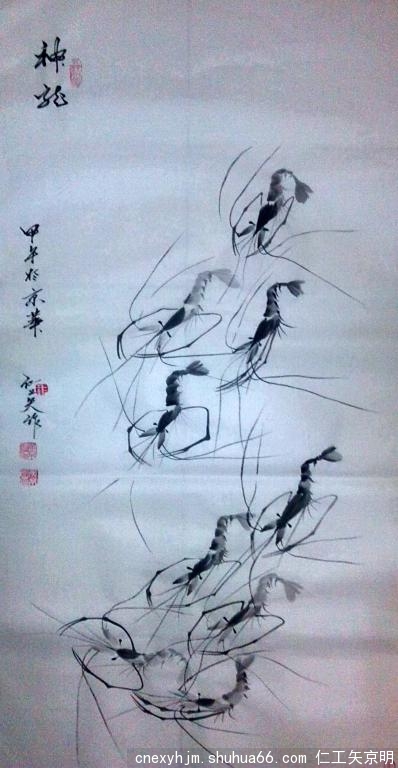 神龙
甲午於京華
作
cnexyhjm.shuhua66.com 仁工矢京明